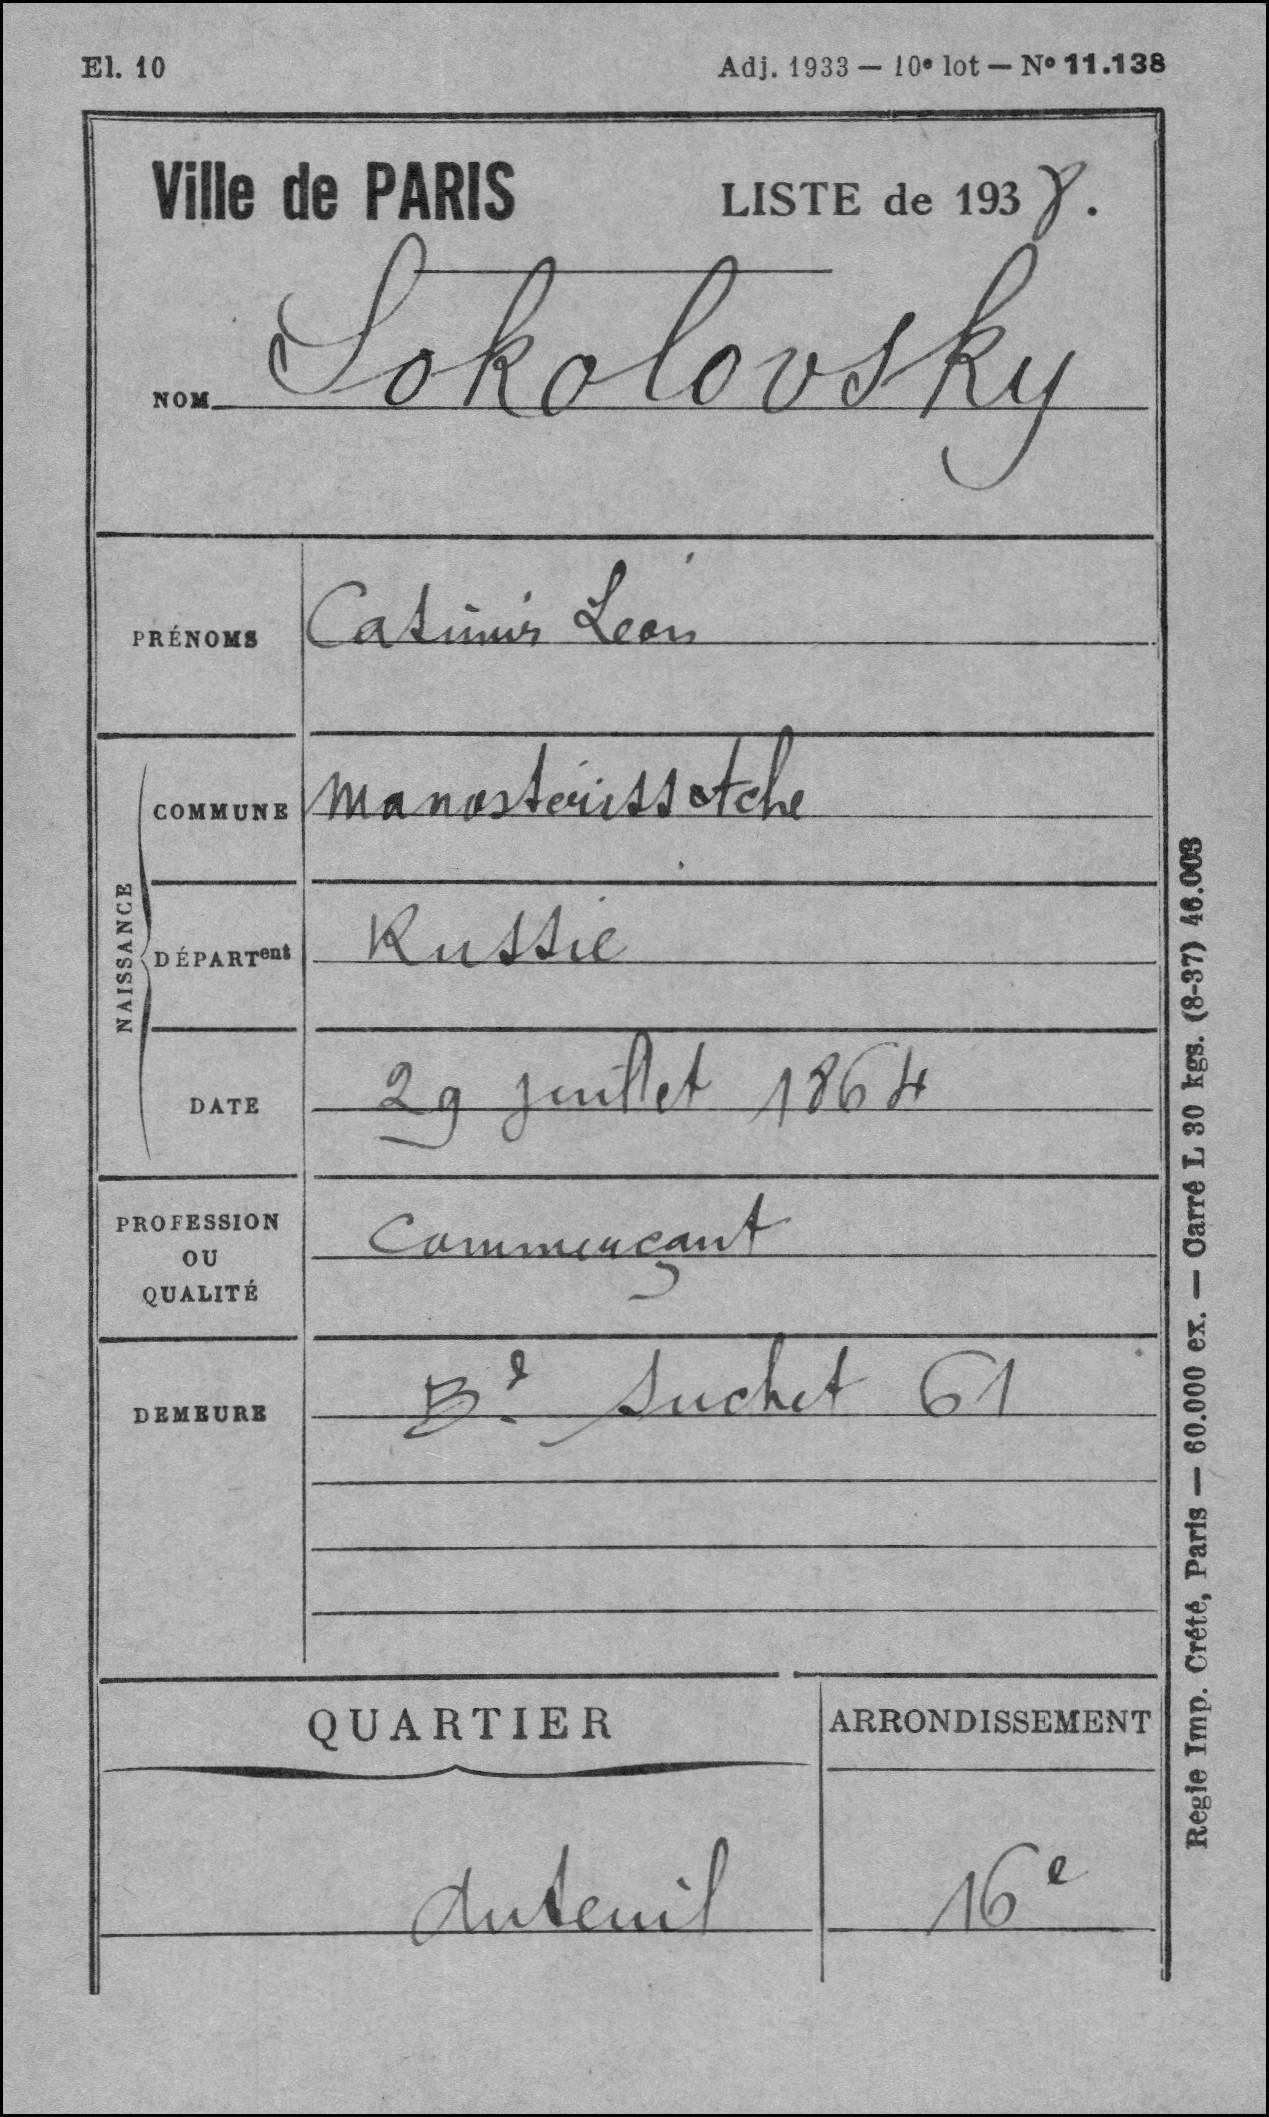 El. 10
Adj. 1933 — 10e lot — No 11.138
Ville de PARIS
LISTE de 1938.
NOM Sokolovsky
PRÉNOMS Casimir Léon
NAISSANCE
COMMUNE Manasterissatche
DÉPARTent Russie
DATE 29 juillet 1864
PROFESSION
OU
QUALITÉ
Commerçant
DEMEURE Bd Suchet 61
QUARTIER
ARRONDISSEMENT
Auteuil
16e
Régie Imp. Crété, Paris — 60.000 ex. — Carré L 30 kgs. (8-37) 46.003